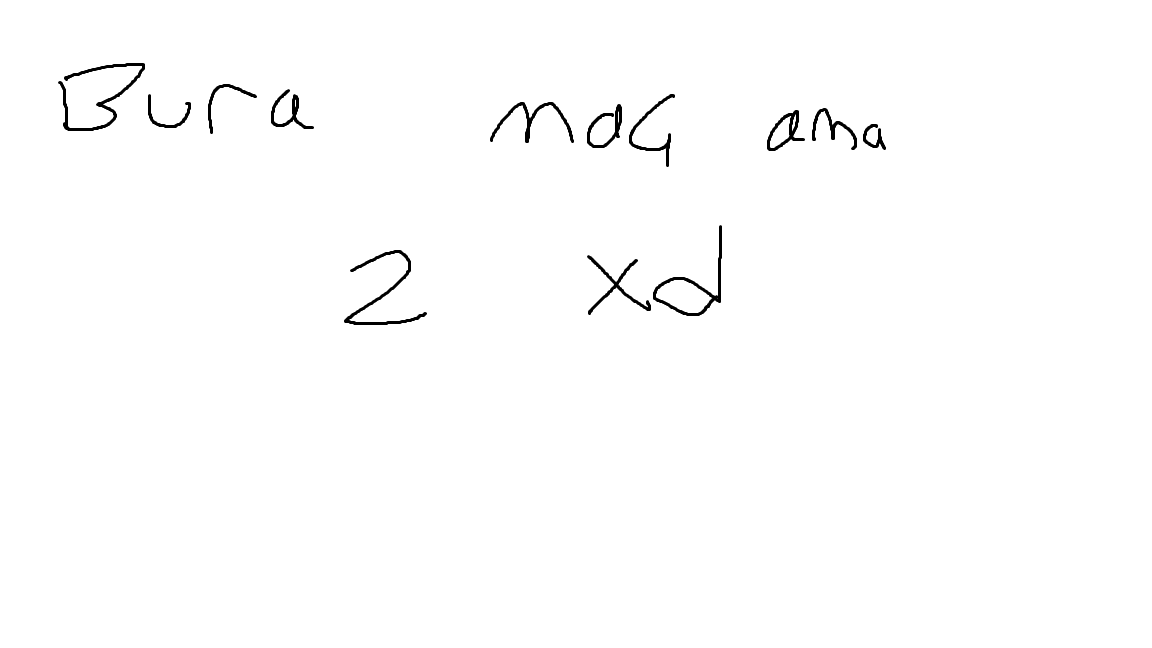 Bura maç ama
2 xd